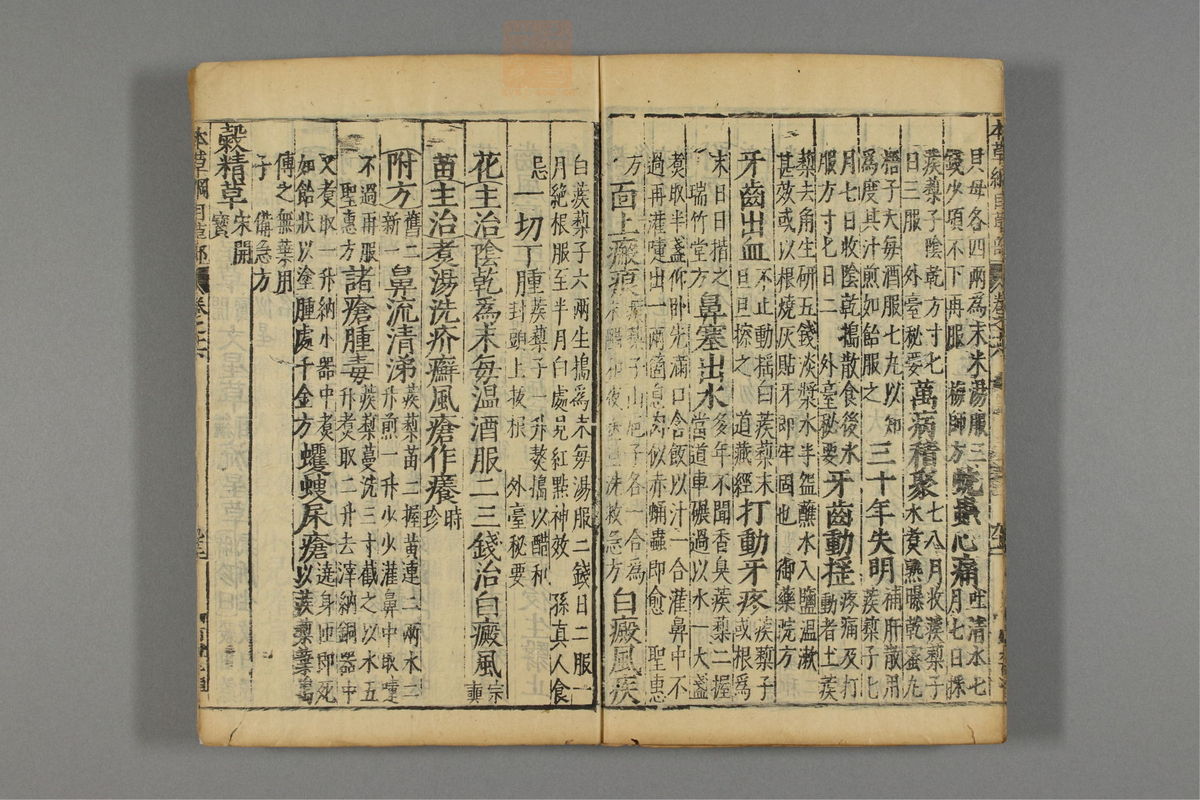 本草綱目草部
卷之十六
貝母各四兩爲末米湯服三
錢少頃不下再服 梅師方
蚘蟲心痛
吐清水七
月七日採
蒺藜子陰乾方寸七
日三服 外臺秘要
萬病積聚
七八月收蒺藜子
水煑熟曝乾蜜丸
梧子大每酒服七丸以知
爲度其汁煎如飴服之
三十年失明
補肝散用
蒺藜子七
月七日收陰乾搗散食後水
服方寸七日二 外臺秘要
牙齒動揺
疼痛及打
動者土蒺
藜去角生研五錢淡漿水半盌蘸水入鹽溫漱
甚效或以根燒灰貼牙即牢固也 御藥院方
牙齒出血
不止動揺白蒺藜末
旦旦擦之 道藏經
打動牙疼
蒺藜子
或根爲
末日日揩之
瑞竹堂方
鼻塞出水
多年不聞香臭蒺藜二握
當道車碾過以水一大盞
煑取半盞仰卧先滿口含飯以汁一合灌鼻中不
過再灌嚏出一兩箇息肉似赤蛹蟲即愈 聖惠
方
面上瘢痕
蒺藜子山梔子各一合爲
末醋和夜塗旦洗救急方
白癜風疾
白蒺藜子六兩生搗爲末每湯服二錢日二服一
月絶根服至半月白處見紅點神效 孫真人食
忌
一切丁腫
蒺藜子一升熬搗以醋和
封頭上拔根 外臺秘要
花主治陰乾爲末每温酒服二三錢治白癜風
宗
奭
苗主治煮湯洗疥癬風瘡作癢
時
珍
附方
舊二
新一
鼻流清涕
蒺藜苗二握黄連二兩水二
升煎一升少少灌鼻中取嚏
不過再服
聖惠方
諸瘡腫毒
蒺藜蔓洗三寸截之以水五
升煑取二升去滓納銅器中
又煑取一升納小器中煑
如飴狀以塗腫處千金方
蠼螋尿瘡
遶身匝即死
以蒺藜葉搗
傅之無葉用
子 備急方
穀精草
宋開
寳
本草綱目草部
卷之十六